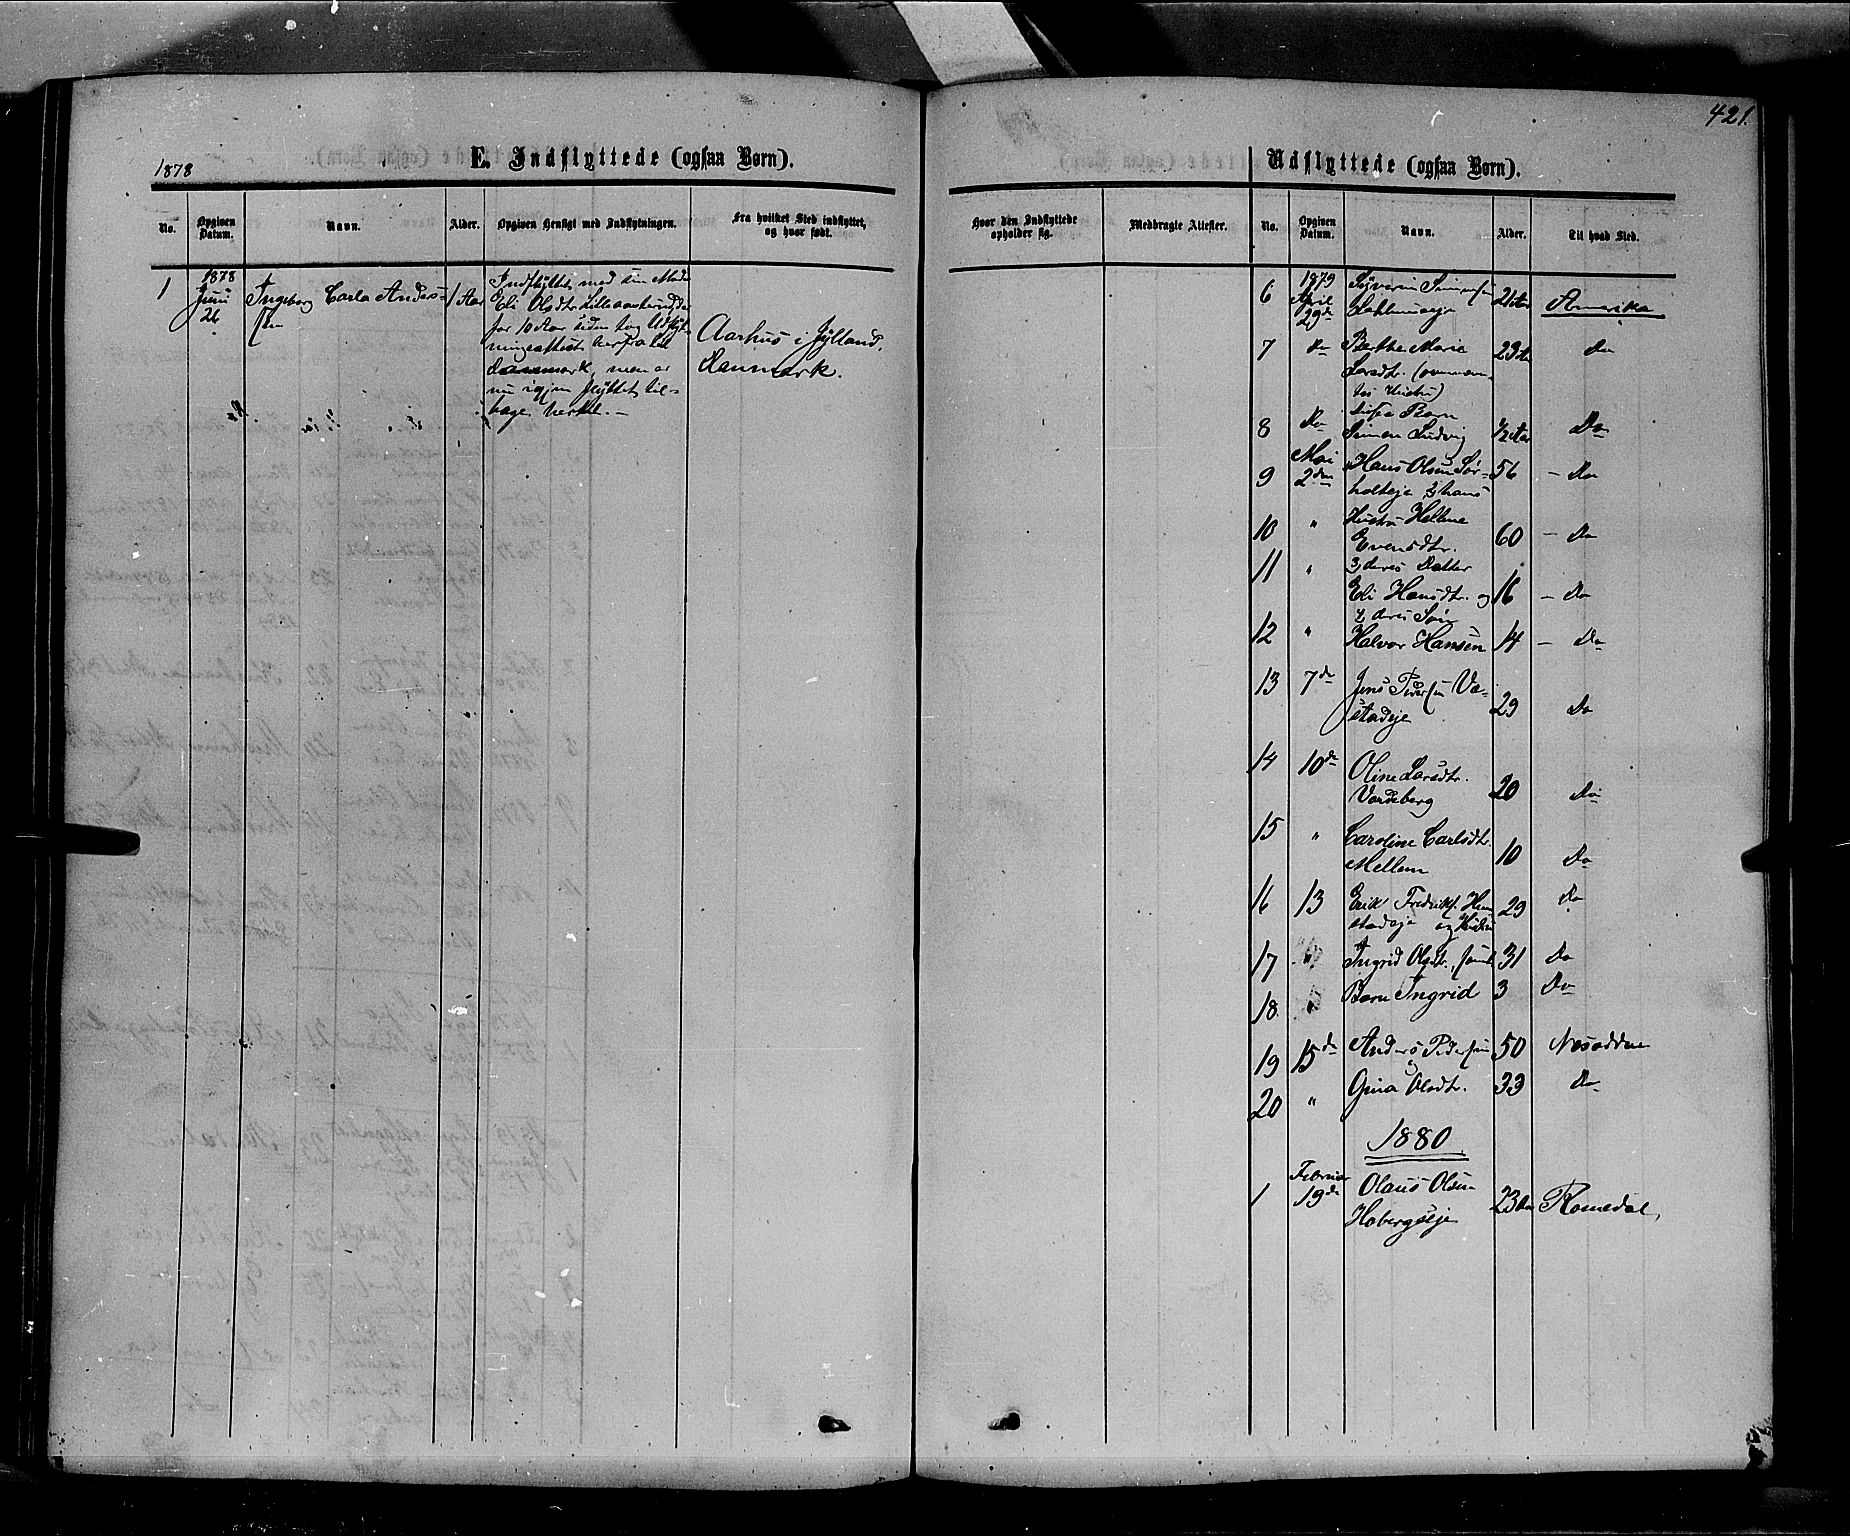 421.
1878
E. Indflyttede (ogsaa Børn).
No.
Opgiven Datum.
Navn.
Alder.
Opgiven Hensigt med Indflytningen.
Fra hvilket Sted indflyttet, og hvor født.
1
1878
Juni
26
Ingeborg Carla Anders-
sen
1 Aar
Indflyttet med sin Moder
Eli Olsdtr.
for 10 Aar siden tog Udflyt-
ningsattest herfra til
Danmark, men er
nu igjen flyttet til-
bage hertil. –
Aarhus i Jylland,
Danmark.
Udflyttede (ogsaa Børn).
Hvor den Indflyttede opholder sig.
Medbragte Attester.
No.
Opgiven Datum.
Navn.
Alder.
Til hvad Sted.
6
1879
April
29de
Simensen
21 Aar
Amerika
7
do
Berthe Marie
Larsdtr. (ovennævn-
tes Hustru)
23 Aar
Do
8
Do
disses Barn
Simen Ludvig
1/2 Aar
Do
9
Mai
2den
Hans Olsen Sør-
holteje & hans
56
– Do
10
"
Hustru Hellene
Evensdtr.
60
– Do
11
"
& deres Datter
Eli Hansdtr. og
16
– Do
12
"
& deres Søn
Halvor Hansen
14
– Do
13
7de
Jens Pedersen
stadeje
29
Do
14
10de
Oline Larsdtr.
Vardeberg
20
Do
15
"
Caroline Carlsdtr.
Mellem
10
Do
16
13
Erik Fredriks.
stadeje og Hustru
29
Do
17
"
Ingrid Olsdtr., samt
31
Do
18.
"
Barn Ingrid
3
Do
19
15de
Anders Pedersen
50
Næsodden
20
"
Gina Olsdtr.
33
Do
1880
1
Februar
19de
Olaus Olsen
Hobergseje
23 Aar
Romedal,